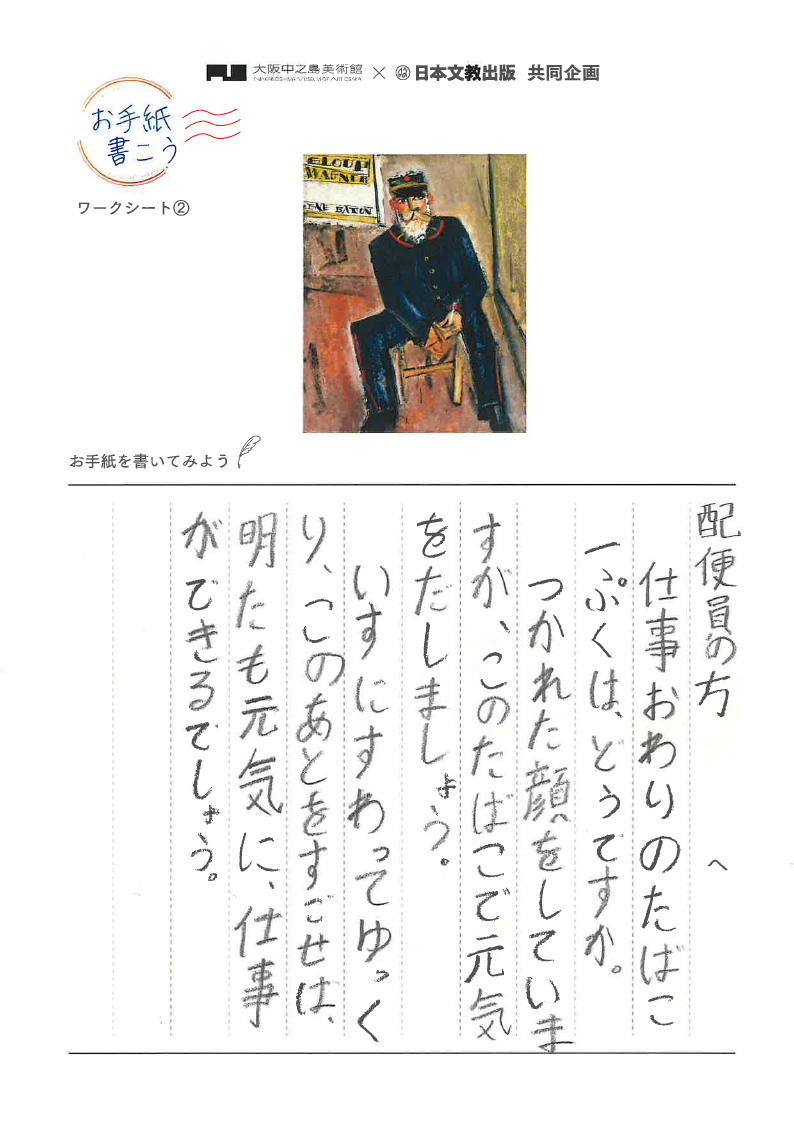 大阪中之島美術館 × 日本文教出版 共同企画
NAKANOSHIMA MUSEUM OF ART, OSAKA
お手紙
書こう
ワークシート②
WAGNER
お手紙を書いてみよう
配便員の方 へ
仕事おわりのたばこ
一ぷくは、どうですか。
つかれた顔をしていま
すが、このたばこで元気
をだしましょう。
いすにすわってゆっく
り、このあとをすごせば、
明たも元気に、仕事
ができるでしょう。